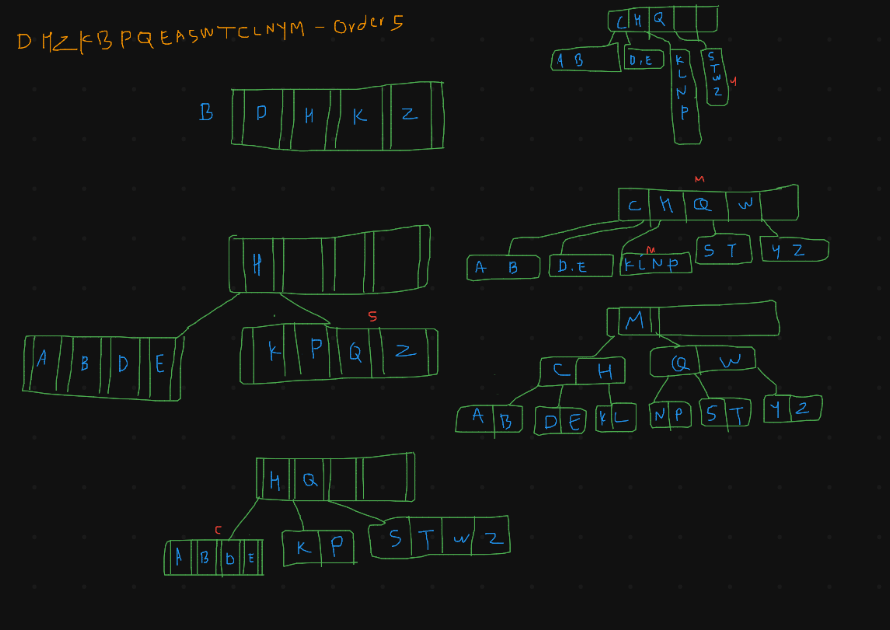 D H Z K B P Q E A S W T C L N Y M - Order 5
B D H K Z
H
S
A B D E K P Q Z
H Q
C
A B D E K P S T W Z
C H Q
A B D.E K L N P S T W Z Y
M
C H Q W
M
A B D.E K L N P S T Y Z
M
C H Q W
A B D E K L N P S T Y Z